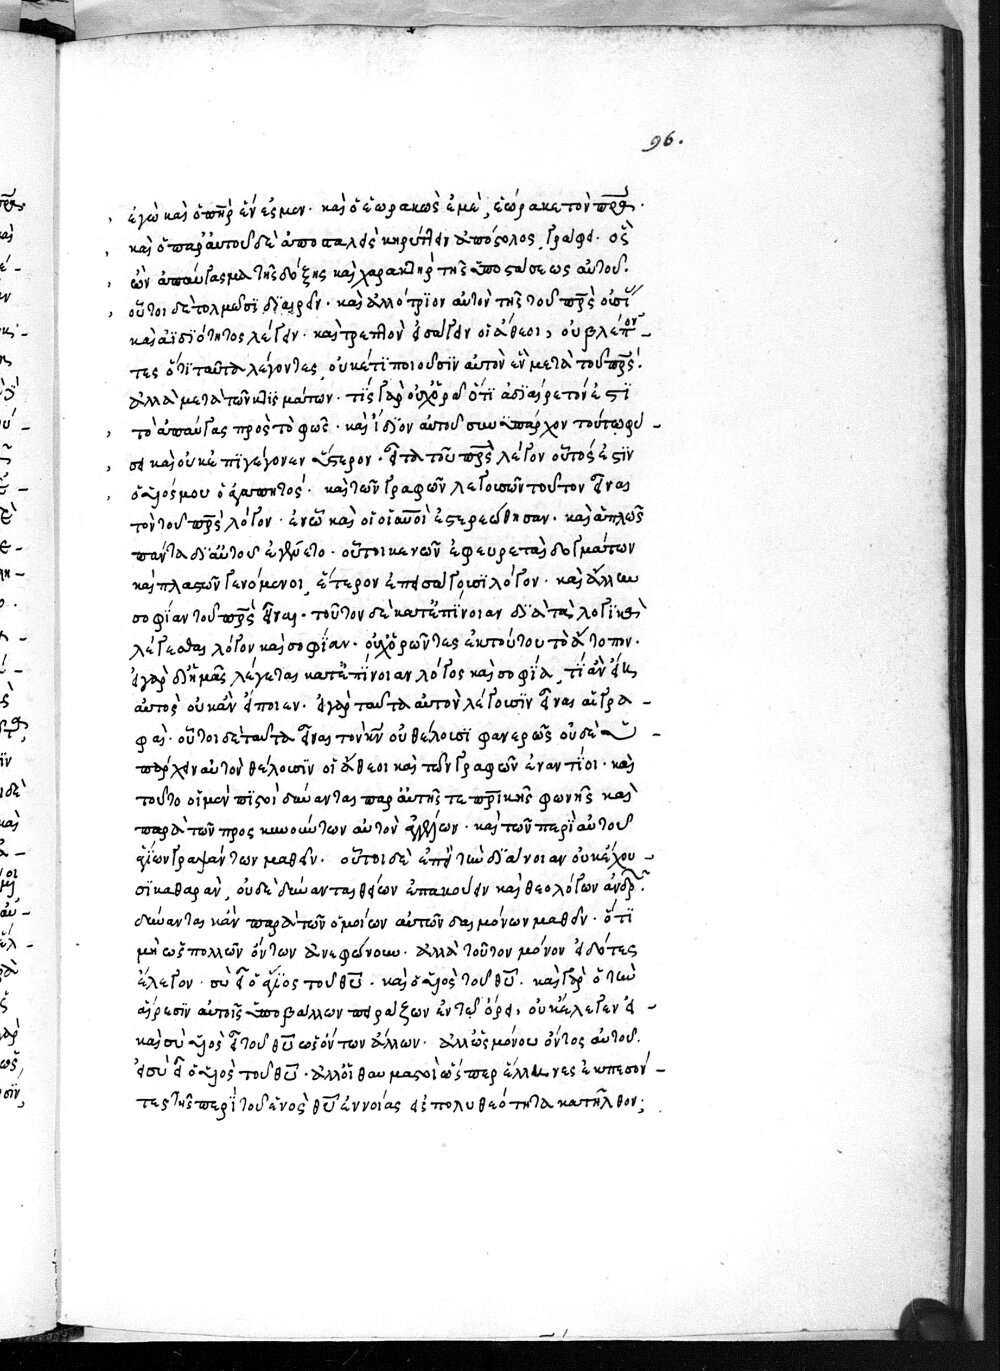 96.
ἐγὼ καὶ ὁ πηρ ἕν ἐσμεν· καὶ ὁ ἑωρακὼς ἐμὲ, ἑώρακε τὸν πρα·
καὶ ὁ παρ' αὐτοῦ δὲ ἀποσταλεὶς κηρύττειν ἀπόστολος, γράφει· ὃς
ὢν ἀπαύγασμα τῆς δόξης καὶ χαρακτὴρ τῆς ὑποστάσεως αὐτοῦ.
οὗτοι δὲ τολμῶσι διαιρεῖν· καὶ ἀλλότριον αὐτὸν τῆς τοῦ πρς οὐσί
καὶ ἀϊδιότητος λέγειν· καὶ τρεπτὸν εἰσάγειν οἱ ἄθεοι, οὐ βλέπον-
τες ὅτι ταῦτα λέγοντες, οὐκέτι ποιοῦσιν αὐτὸν ἓν μετὰ τοῦ πρς.
ἀλλὰ μετὰ τῶν κτισμάτων· τίς γὰρ οὐχ ὁρᾷ ὅτι ἀδιαίρετόν ἐστι
τὸ ἀπαύγας πρὸς τὸ φῶς· καὶ ἴδιον αὐτοῦ συνυπάρχον τούτω φύ-
σει καὶ οὐκ ἐπιγέγονεν ὕστερον· εἶτα τοῦ πρς λέγον οὗτός ἐστιν
ὁ υἱός μου ὁ ἀγαπητός· καὶ τῶν γραφῶν λεγουσῶν τοῦτον εἶναι
τὸν τοῦ πρς λόγον· ἐν ᾧ καὶ οἱ οὐνοὶ ἐστερεώθησαν· καὶ ἁπλῶς
πάντα δι' αὐτοῦ ἐγένετο· οὗτοι καινῶν ἐφευρεταὶ δογμάτων
καὶ πλασμῶν γενόμενοι, ἕτερον ἐπεισάγουσι λόγον· καὶ ἄλλην
σοφίαν τοῦ πρς εἶναι· τοῦτον δὲ κατ' ἐπίνοιαν διὰ τὰ λογικὰ
λέγεσθαι λόγον καὶ σοφίαν· οὐχ ὁρῶντες ἐκ τούτου τὸ ἄτοπον·
εἰ γὰρ δι' ἡμᾶς λέγεται κατ' ἐπίνοιαν λόγος καὶ σοφία, τί ἂν εἴη
αὐτὸς οὐκ ἂν εἴποιεν· εἰ γὰρ ταῦτα αὐτὸν λέγουσιν εἶναι αἱ γρα-
φαὶ· οὗτοι δὲ ταῦτα εἶναι τὸν κν οὐ θέλουσι φανερῶς οὐδὲ ὑ-
πάρχειν αὐτὸν θέλουσιν οἱ ἄθεοι καὶ τῶν γραφῶν ἐναντίοι· καὶ
τοῦτο οἱ μὲν πιστοὶ δύνανται παρ' αὐτῆς τε πρικῆς φωνῆς καὶ
παρὰ τῶν προσκυνούντων αὐτὸν ἀγγέλων· καὶ τῶν περὶ αὐτοῦ
ἁγίων γραψάντων μαθεῖν· οὗτοι δὲ ἐπεὶ τὴν διάνοιαν οὐκ ἔχου-
σι καθαρὰν, οὐδὲ δύνανται θείων ἐπακούειν καὶ θεολόγων ἀνδρ.
δύνανται κἂν παρὰ τῶν ὁμοίων αὐτῶν δαιμόνων μαθεῖν· ὅτι
μὴ ὡς πολλῶν ὄντων ἀνεφώνουν· ἀλλὰ τοῦτον μόνον εἰδότες
ἔλεγον· σὺ εἶ ὁ ἅγιος τοῦ θυ· καὶ ὁ υἱὸς τοῦ θυ· καὶ γὰρ ὁ τὴν
αἵρεσιν αὐτοῖς ὑποβάλλων πειράζων ἐν τῷ ὄρει, οὐκ ἔλεγεν εἰ-
καὶ σὺ υἱὸς εἶ τοῦ θυ ὡς ὄντων ἄλλων· ἀλλ' ὡς μόνου ὄντος αὐτοῦ.
εἰ σὺ εἶ ὁ υἱὸς τοῦ θυ· ἀλλ' οἱ θαυμαστοὶ ὥσπερ ἕλληνες ἐκπεσόν-
τες τῆς περὶ τοῦ ἑνὸς θυ ἐννοίας εἰς πολυθεότητα κατῆλθον;